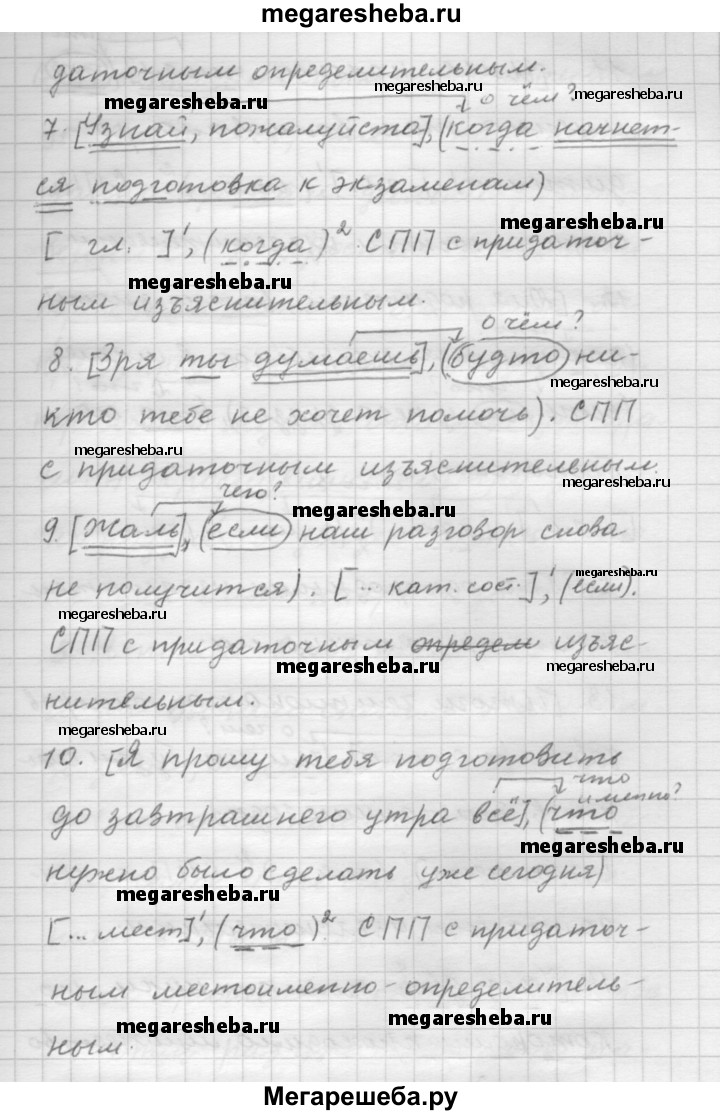 megaresheba.ru
даточным определительным.
megaresheba.ru
megaresheba.ru
о чём?
7. [Узнай, пожалуйста], (когда начнет-
ся подготовка к экзаменам)
megaresheba.ru
[ гл. ]¹, (когда)². СПП с придаточ-
megaresheba.ru
ным изъяснительным.
о чём?
8. [Зря ты думаешь], (будто ни-
megaresheba.ru
кто тебе не хочет помочь). СПП
megaresheba.ru
с придаточным изъяснительным.
megaresheba.ru
чего?
megaresheba.ru
9. [Жаль], (если наш разговор снова
megaresheba.ru
не получится). [.. кат. сост.]¹, (если).
megaresheba.ru
СПП с придаточным определ изъяс-
megaresheba.ru
megaresheba.ru
нительным.
megaresheba.ru
10. [Я прошу тебя подготовить
megaresheba.ru
что
именно?
до завтрашнего утра всё], (что
megaresheba.ru
нужно было сделать уже сегодня)
megaresheba.ru
[... мест]¹, (что)². СПП с придаточ-
ным местоименно-определитель-
megaresheba.ru
megaresheba.ru
ным.
Мегарешеба.ру